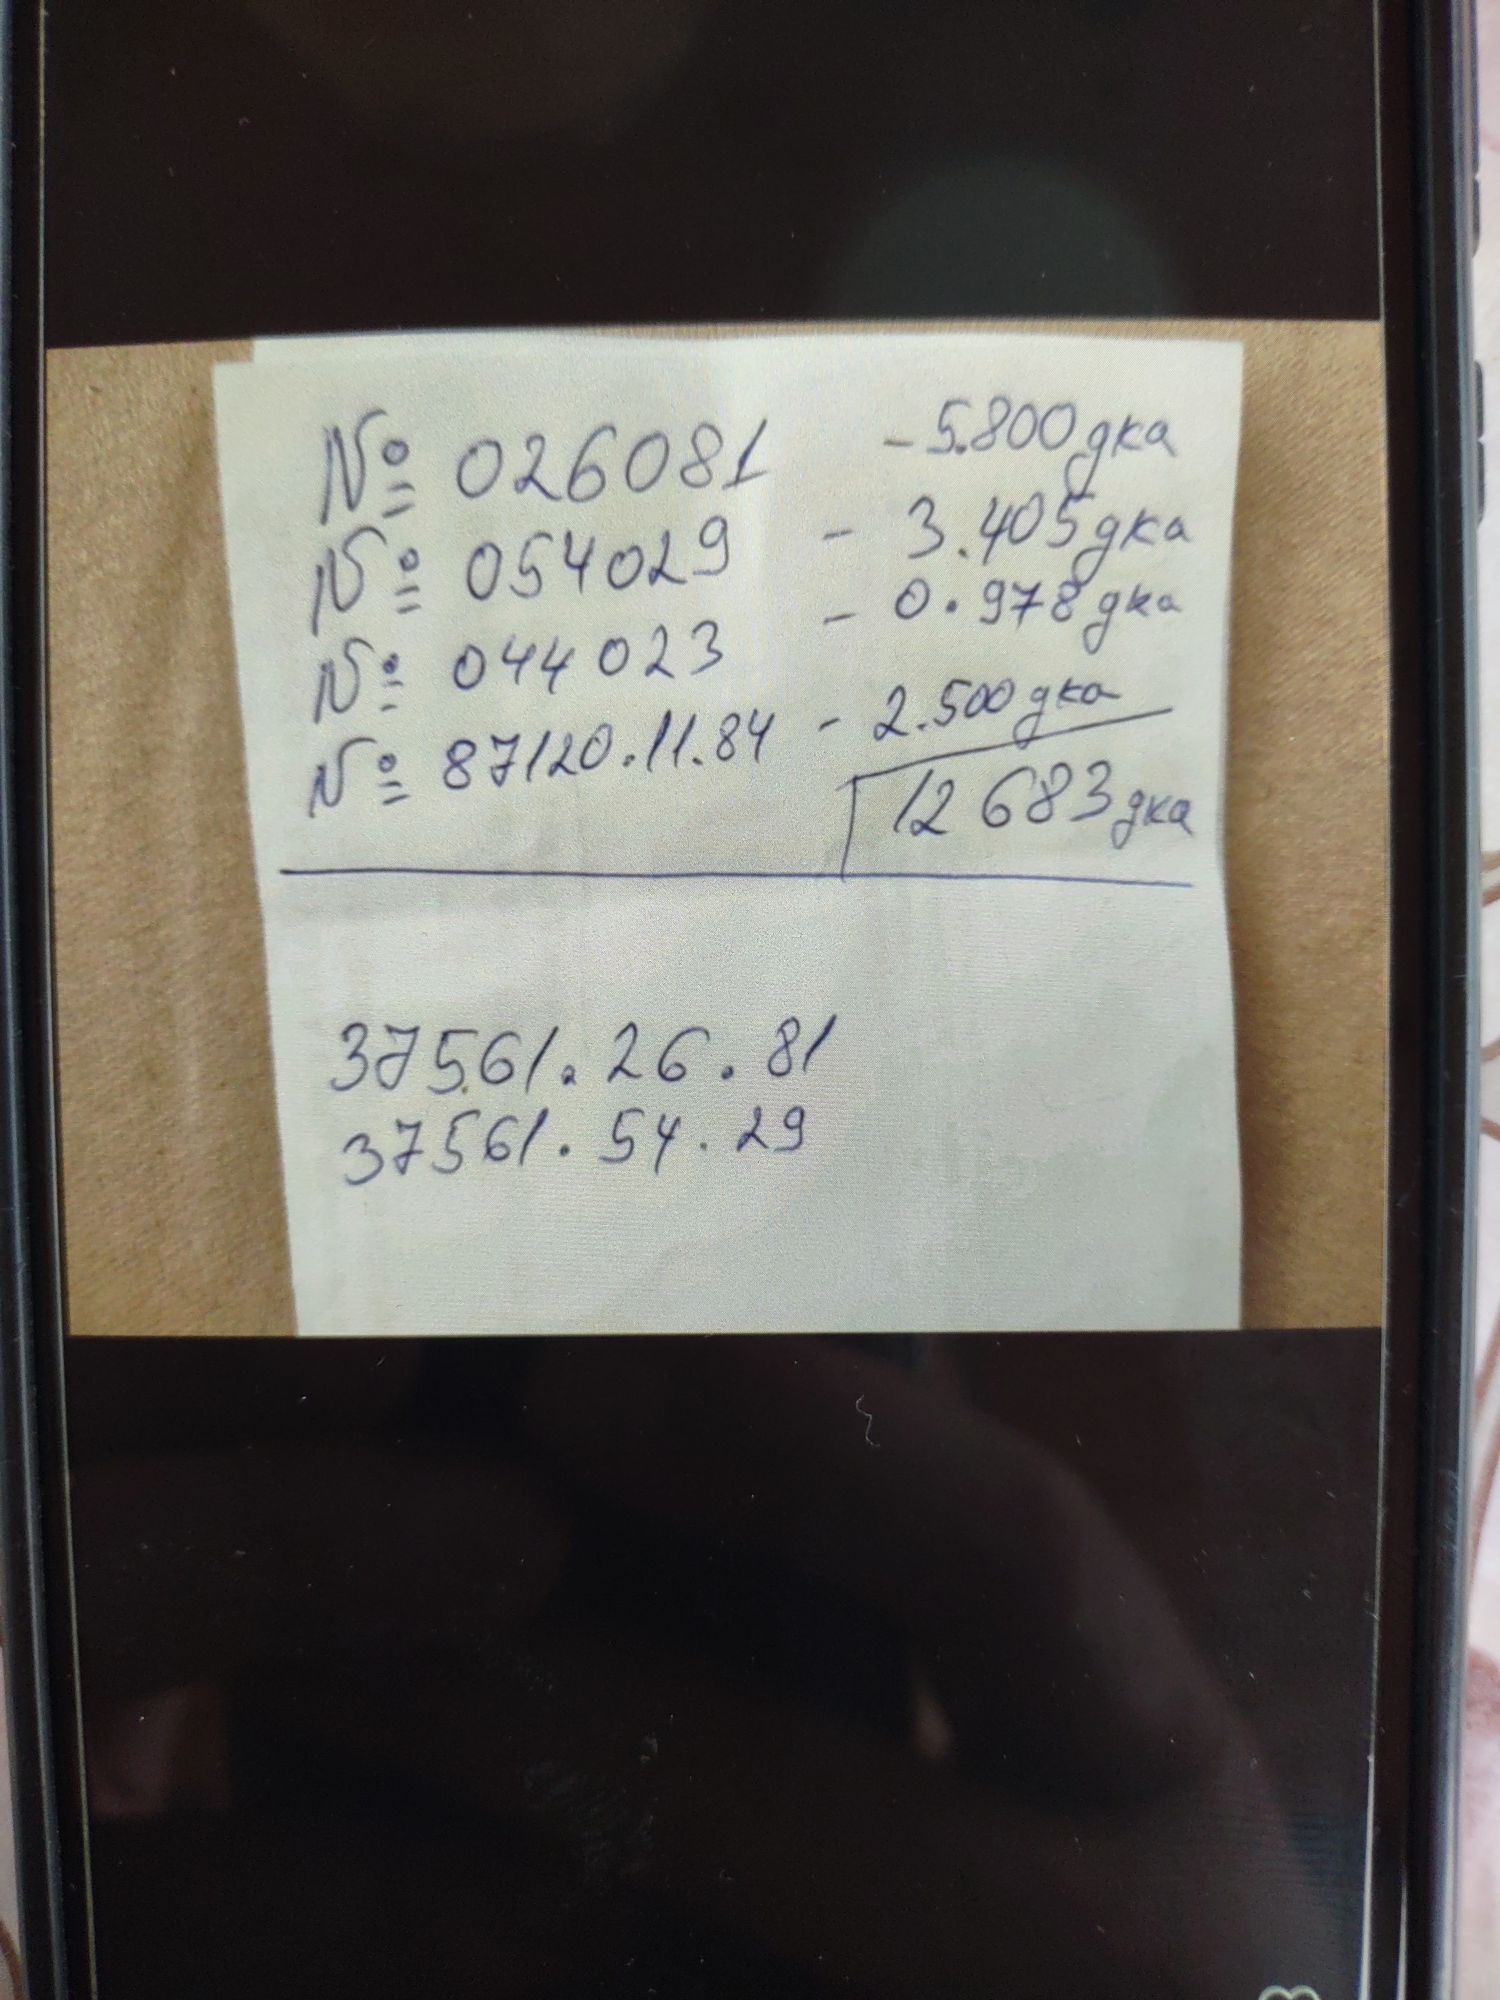 № 026081 - 5.800 дка
№ 054029 - 3.405 дка
№ 044023 - 0.978 дка
№ 87120.11.84 - 2.500 дка
12 683 дка
37561.26.81
37561.54.29